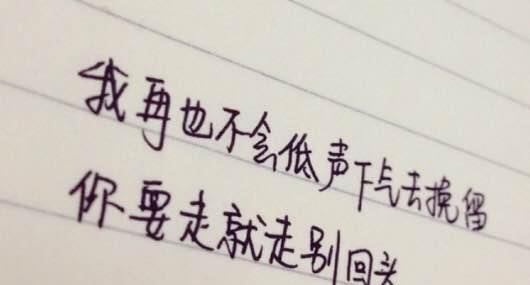 我再也不会低声下气去挽留
你要走就走别回头